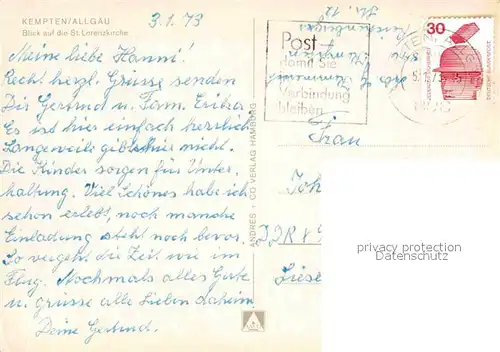 KEMPTEN/ALLGÄU
Blick auf die St. Lorenzkirche
3.1.73
Meine liebe Hanni!
Recht herzl. Grüsse senden
Dir Gertrud u. Fam.
Es ist hier einfach herrlich
Langeweile gibt's hier nicht.
Die Kinder sorgen für Unter-
haltung. Viel Schönes habe ich
schon erlebt, noch manche
Einladung steht noch bevor.
So vergeht die Zeit wie im
Flug. Nochmals alles Gute
u. Grüsse alle Lieben daheim.
Deine Gertrud.
ANDRES + CO VERLAG HAMBURG
Post
damit Sie
in Verbindung
bleiben
30
DEUTSCHE BUNDESPOST
Frau
Joh
DDR
Liese
privacy protection
Datenschutz